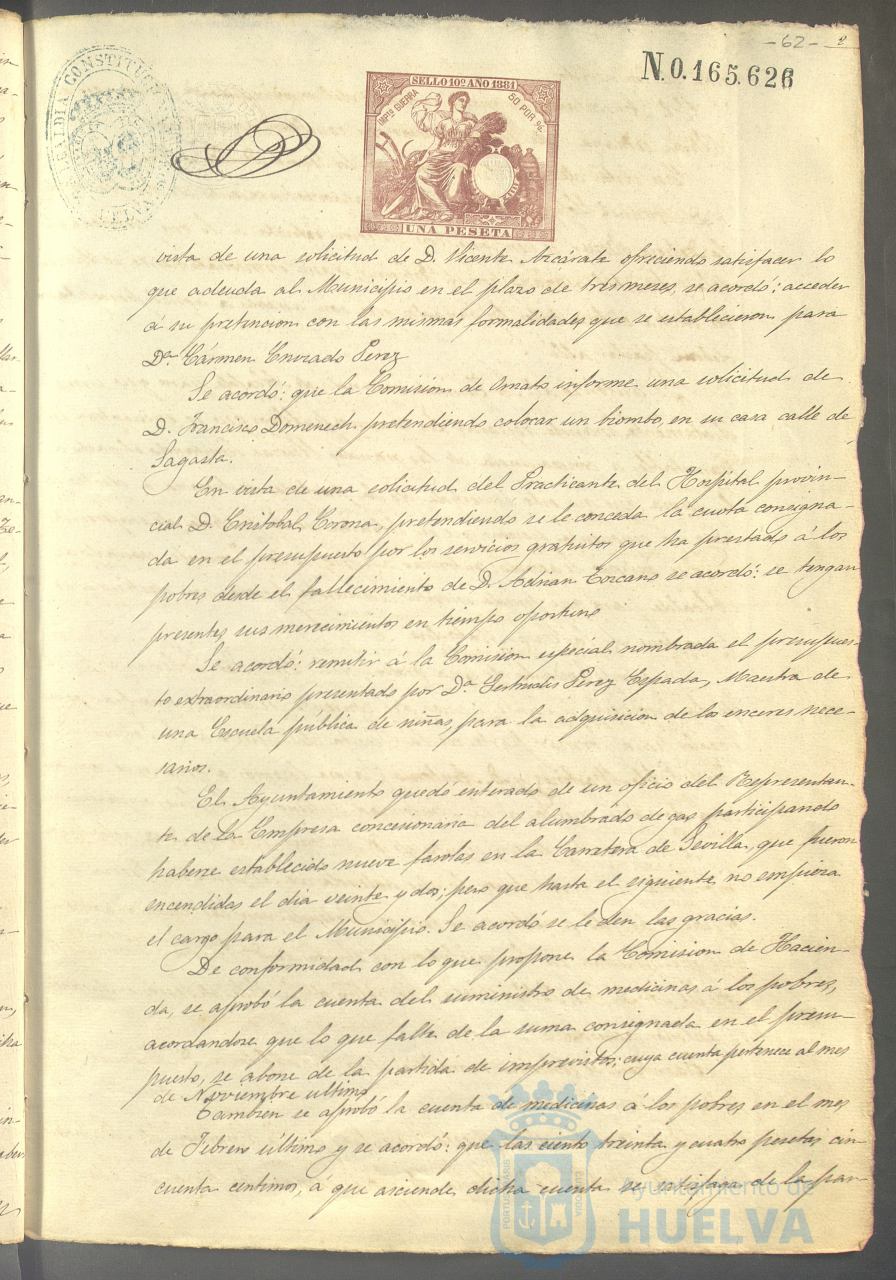 -62- 2
N.0.165.626
ALCALDIA CONSTITUCIONAL HUELVA
SELLO 10º AÑO 1881
IMPTO GUERRA 50 POR %
UNA PESETA
vista de una solicitud de D. Vicente Azcárate ofreciendo satisfacer lo
que adeuda al Municipio en el plazo de tres meses, se acordó: acceder
á su pretencion con las mismas formalidades que se establecieron para
Dª. Cármen Enviado Perez
Se acordó: que la Comision de Ornato informe una solicitud de
D. Francisco Domenech pretendiendo colocar un biombo en su casa calle de
Sagasta.
En vista de una solicitud del Practicante del Hospital provin-
cial D. Cristobal Corona, pretendiendo se le conceda la cuota consigna-
da en el presupuesto por los servicios gratuitos que ha prestado á los
pobres desde el fallecimiento de D. Adrian Toscano se acordó: se tengan
presentes sus merecimientos en tiempo oportuno
Se acordó: remitir á la Comision especial nombrada el presupues-
to extraordinario presentado por Dª Gertrudis Perez Espada, Maestra de
una Escuela pública de niñas, para la adquisicion de los enceres nece-
sarios.
El Ayuntamiento quedó enterado de un oficio del Representan-
te de la Empresa concesionaria del alumbrado de gas participando
haberse establecido nueve faroles en la Carretera de Sevilla, que fueron
encendidos el dia veinte y dos; pero que hasta el siguiente no empieza
el cargo para el Municipio. Se acordó se le den las gracias.
De conformidad con lo que propone la Comision de Hacien-
da, se aprobó la cuenta del suministro de medicinas á los pobres,
acordandose que lo que falte de la suma consignada en el presu-
puesto, se abone de la partida de imprevistos; cuya cuenta pertenece al mes
de Noviembre último
Tambien se aprobó la cuenta de medicinas á los pobres en el mes
de Febrero último y se acordó: que las ciento treinta y cuatro pesetas cin-
cuenta centimos, á que asciende dicha cuenta se satisfaga de la par-
Ayuntamiento de
HUELVA